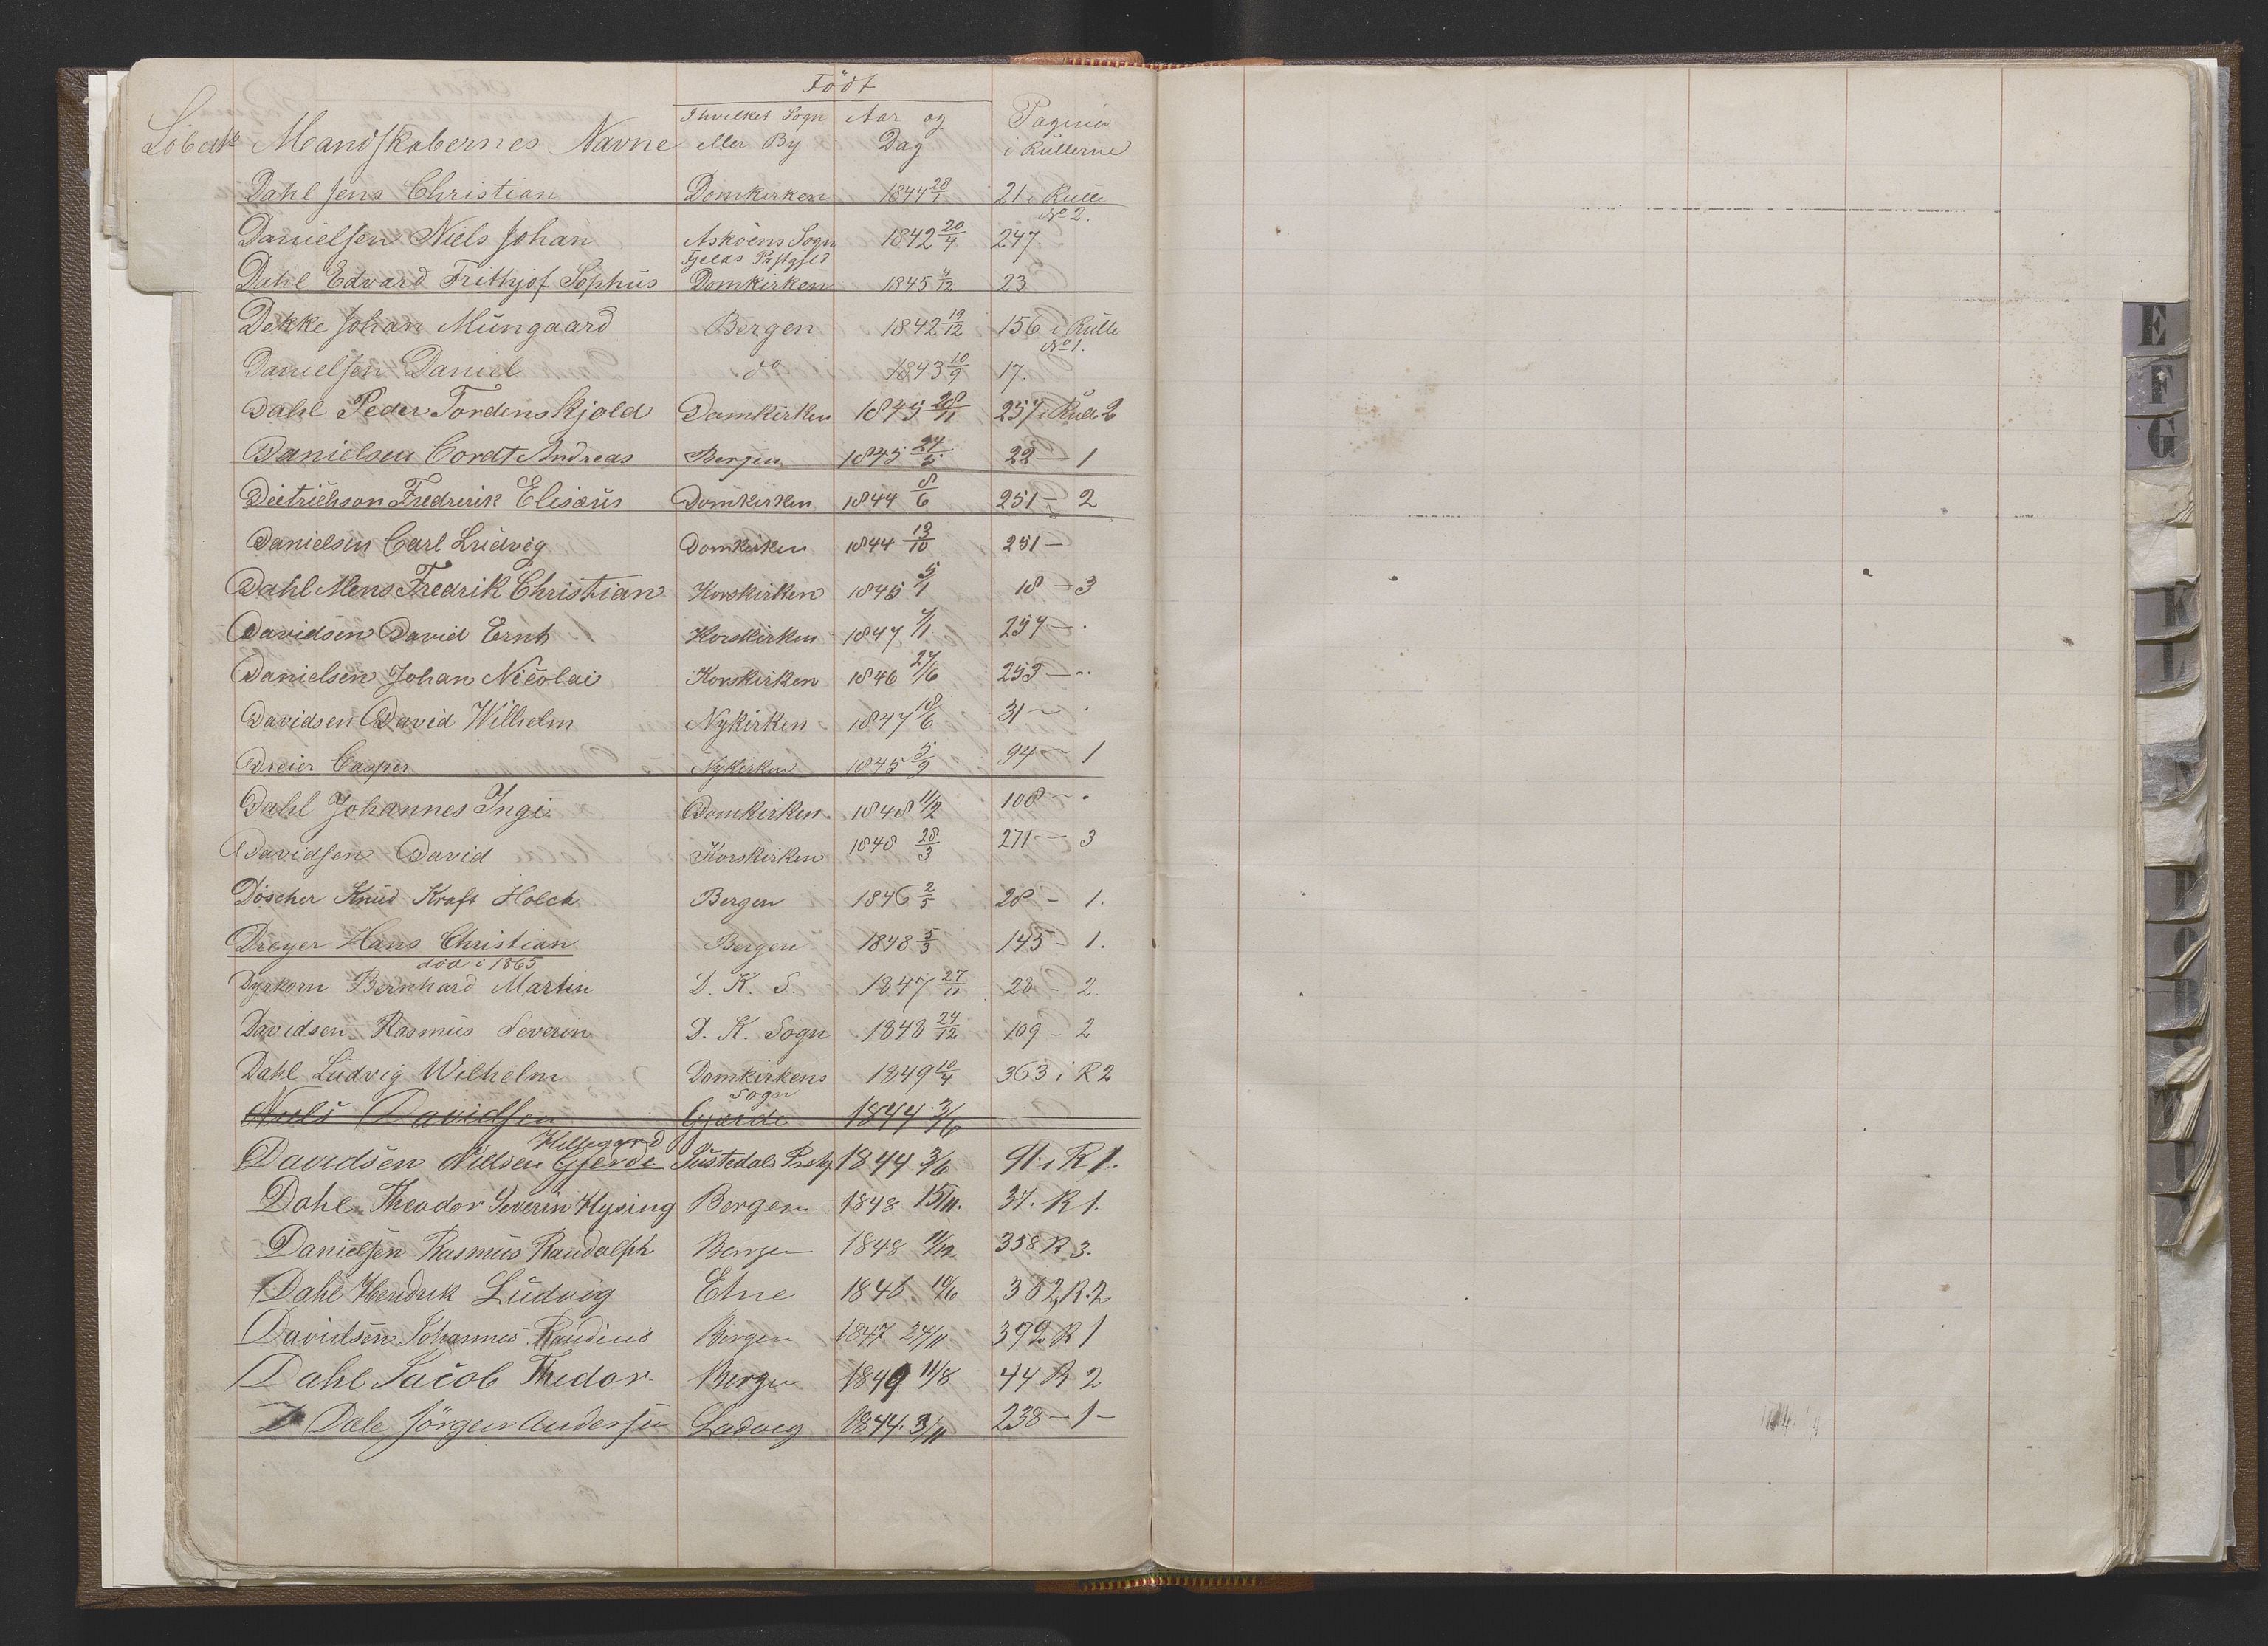 Födt
Löbe No Mandskabernes Navne Ihvilket Sogn eller By Aar og Dag Pagina i Rullerne
Dahl Jens Christian Domkirken 1844 28/1 21 i Rulle No 2.
Danielsen Niels Johan Asköens Sogn 1842 20/4 247.
Fjelds Prstgjld
Dahl Edvard Frithjof Sophus Domkirken 1845 4/12 23
Dekke Johan Mungaard Bergen 1842 19/12 156 i Rulle No 1.
Danielsen Daniel do 1843 10/9 17.
Dahl Peder Tordenskjold Domkirken 1845 28/11 257 i Rulle 2
Danielsen Cordt Andreas Bergen 1845 24/5 22 — 1
Dietrichson Fredrerik Elisæus Domkirken 1844 8/6 251 — 2
Danielsen Carl Ludvig Domkirken 1844 13/10 251 —
Dahl Mons Fredrik Christian Korskirken 1845 5/1 18 — 3
Davidsen David Ernt Korskirken 1847 4/1 257 — .
Danielsen Johan Nicolai Korskirken 1846 27/6 253 — ..
Davidsen David Wilhelm Nykirken 1847 18/6 31 — .
Dreier Casper Nykirken 1845 5/9 94 — 1
Dahl Johannes Ingi Domkirken 1848 11/2 108 — .
Davidsen David Korskirken 1848 28/3 271 — 3
Döscher Knud Kraft Holck Bergen 1846 2/5 28 — 1.
Dreyer Hans Christian Bergen 1848 5/3 145 — 1.
död i 1865
Dyrkorn Bernhard Martin D. K. S. 1847 27/11 28 — 2.
Davidsen Rasmus Severin D. K. Sogn 1848 24/12 109 — 2
Dahl Ludvig Wilhelm Domkirkens Sogn 1849 10/4 363 i R 2
Niels Davidsen Gjerde 1844 3/6
Hillegard
Davidsen Nielsen Gjerde Justedals Prstg 1844 3/6 91 i R 1.
Dahl Theodor Severin Hysing Bergen 1848 15/11. 37. R 1.
Danielsen Rasmus Randolph Bergen 1848 11/12 358 R 3.
Dahl Hendrik Ludvig Etne 1846 10/6 362 R. 2
Davidsen Johannes Bergen 1847 24/11 392 R 1
Dahl Jacob Thedor Bergen 1849 11/8 44 R 2
Dale, Jörgen Andersen Ladvig 1844. 3/11 238 — 1 —
E
F
G
K
L
P